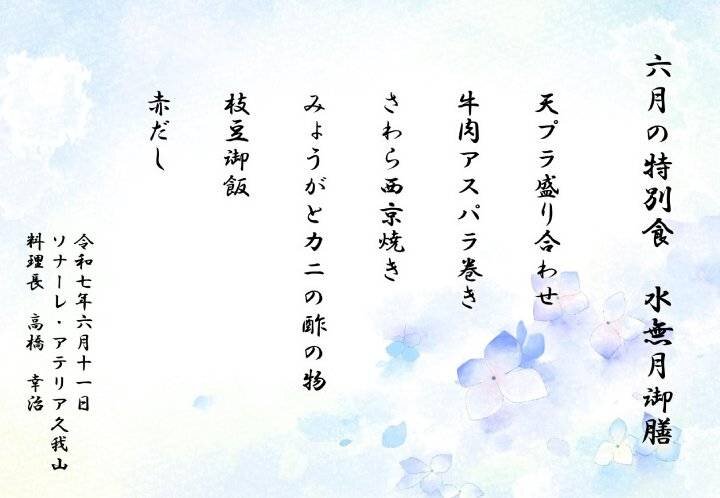 六月の特別食　水無月御膳
天プラ盛り合わせ
牛肉アスパラ巻き
さわら西京焼き
みょうがとカニの酢の物
枝豆御飯
赤だし
令和七年六月十一日
ソナーレ・アテリア久我山
料理長　高橋　幸治